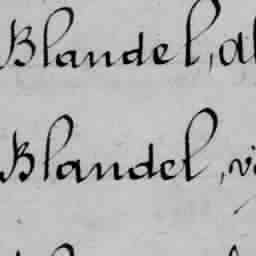 Blandel,
Blandel,